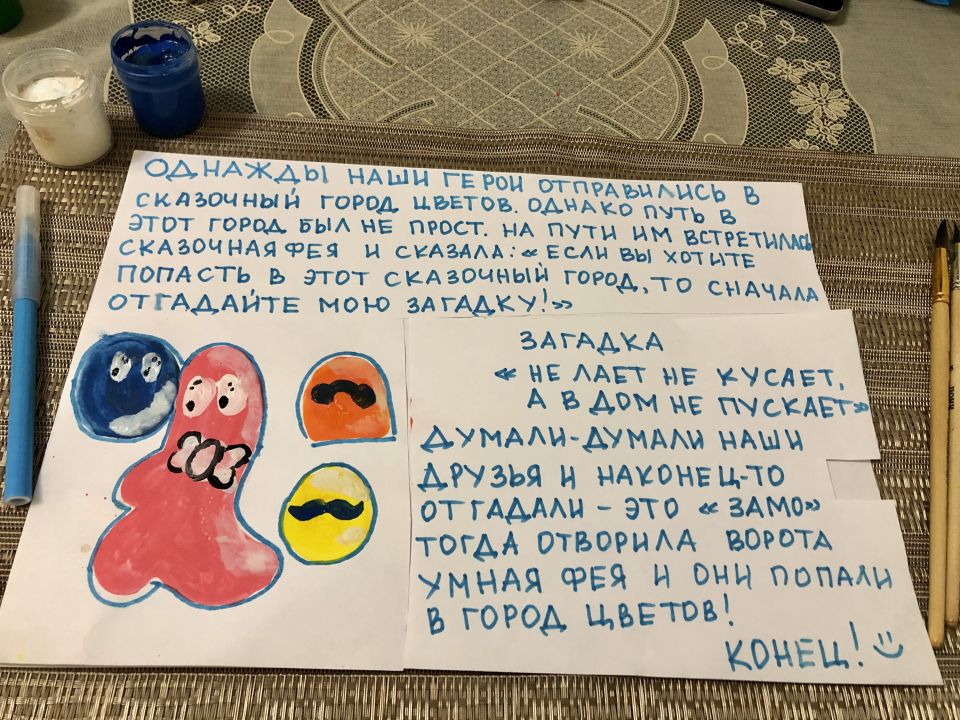 ОДНАЖДЫ НАШИ ГЕРОИ ОТПРАВИЛИСЬ В
СКАЗОЧНЫЙ ГОРОД ЦВЕТОВ. ОДНАКО ПУТЬ В
ЭТОТ ГОРОД БЫЛ НЕ ПРОСТ. НА ПУТИ ИМ ВСТРЕТИЛАСЬ
СКАЗОЧНАЯ ФЕЯ И СКАЗАЛА: «ЕСЛИ ВЫ ХОТИТЕ
ПОПАСТЬ В ЭТОТ СКАЗОЧНЫЙ ГОРОД, ТО СНАЧАЛА
ОТГАДАЙТЕ МОЮ ЗАГАДКУ!»
ЗАГАДКА
« НЕ ЛАЕТ НЕ КУСАЕТ,
А В ДОМ НЕ ПУСКАЕТ»
ДУМАЛИ-ДУМАЛИ НАШИ
ДРУЗЬЯ И НАКОНЕЦ-ТО
ОТГАДАЛИ - ЭТО « ЗАМО»
ТОГДА ОТВОРИЛА ВОРОТА
УМНАЯ ФЕЯ И ОНИ ПОПАЛИ
В ГОРОД ЦВЕТОВ!
КОНЕЦ!